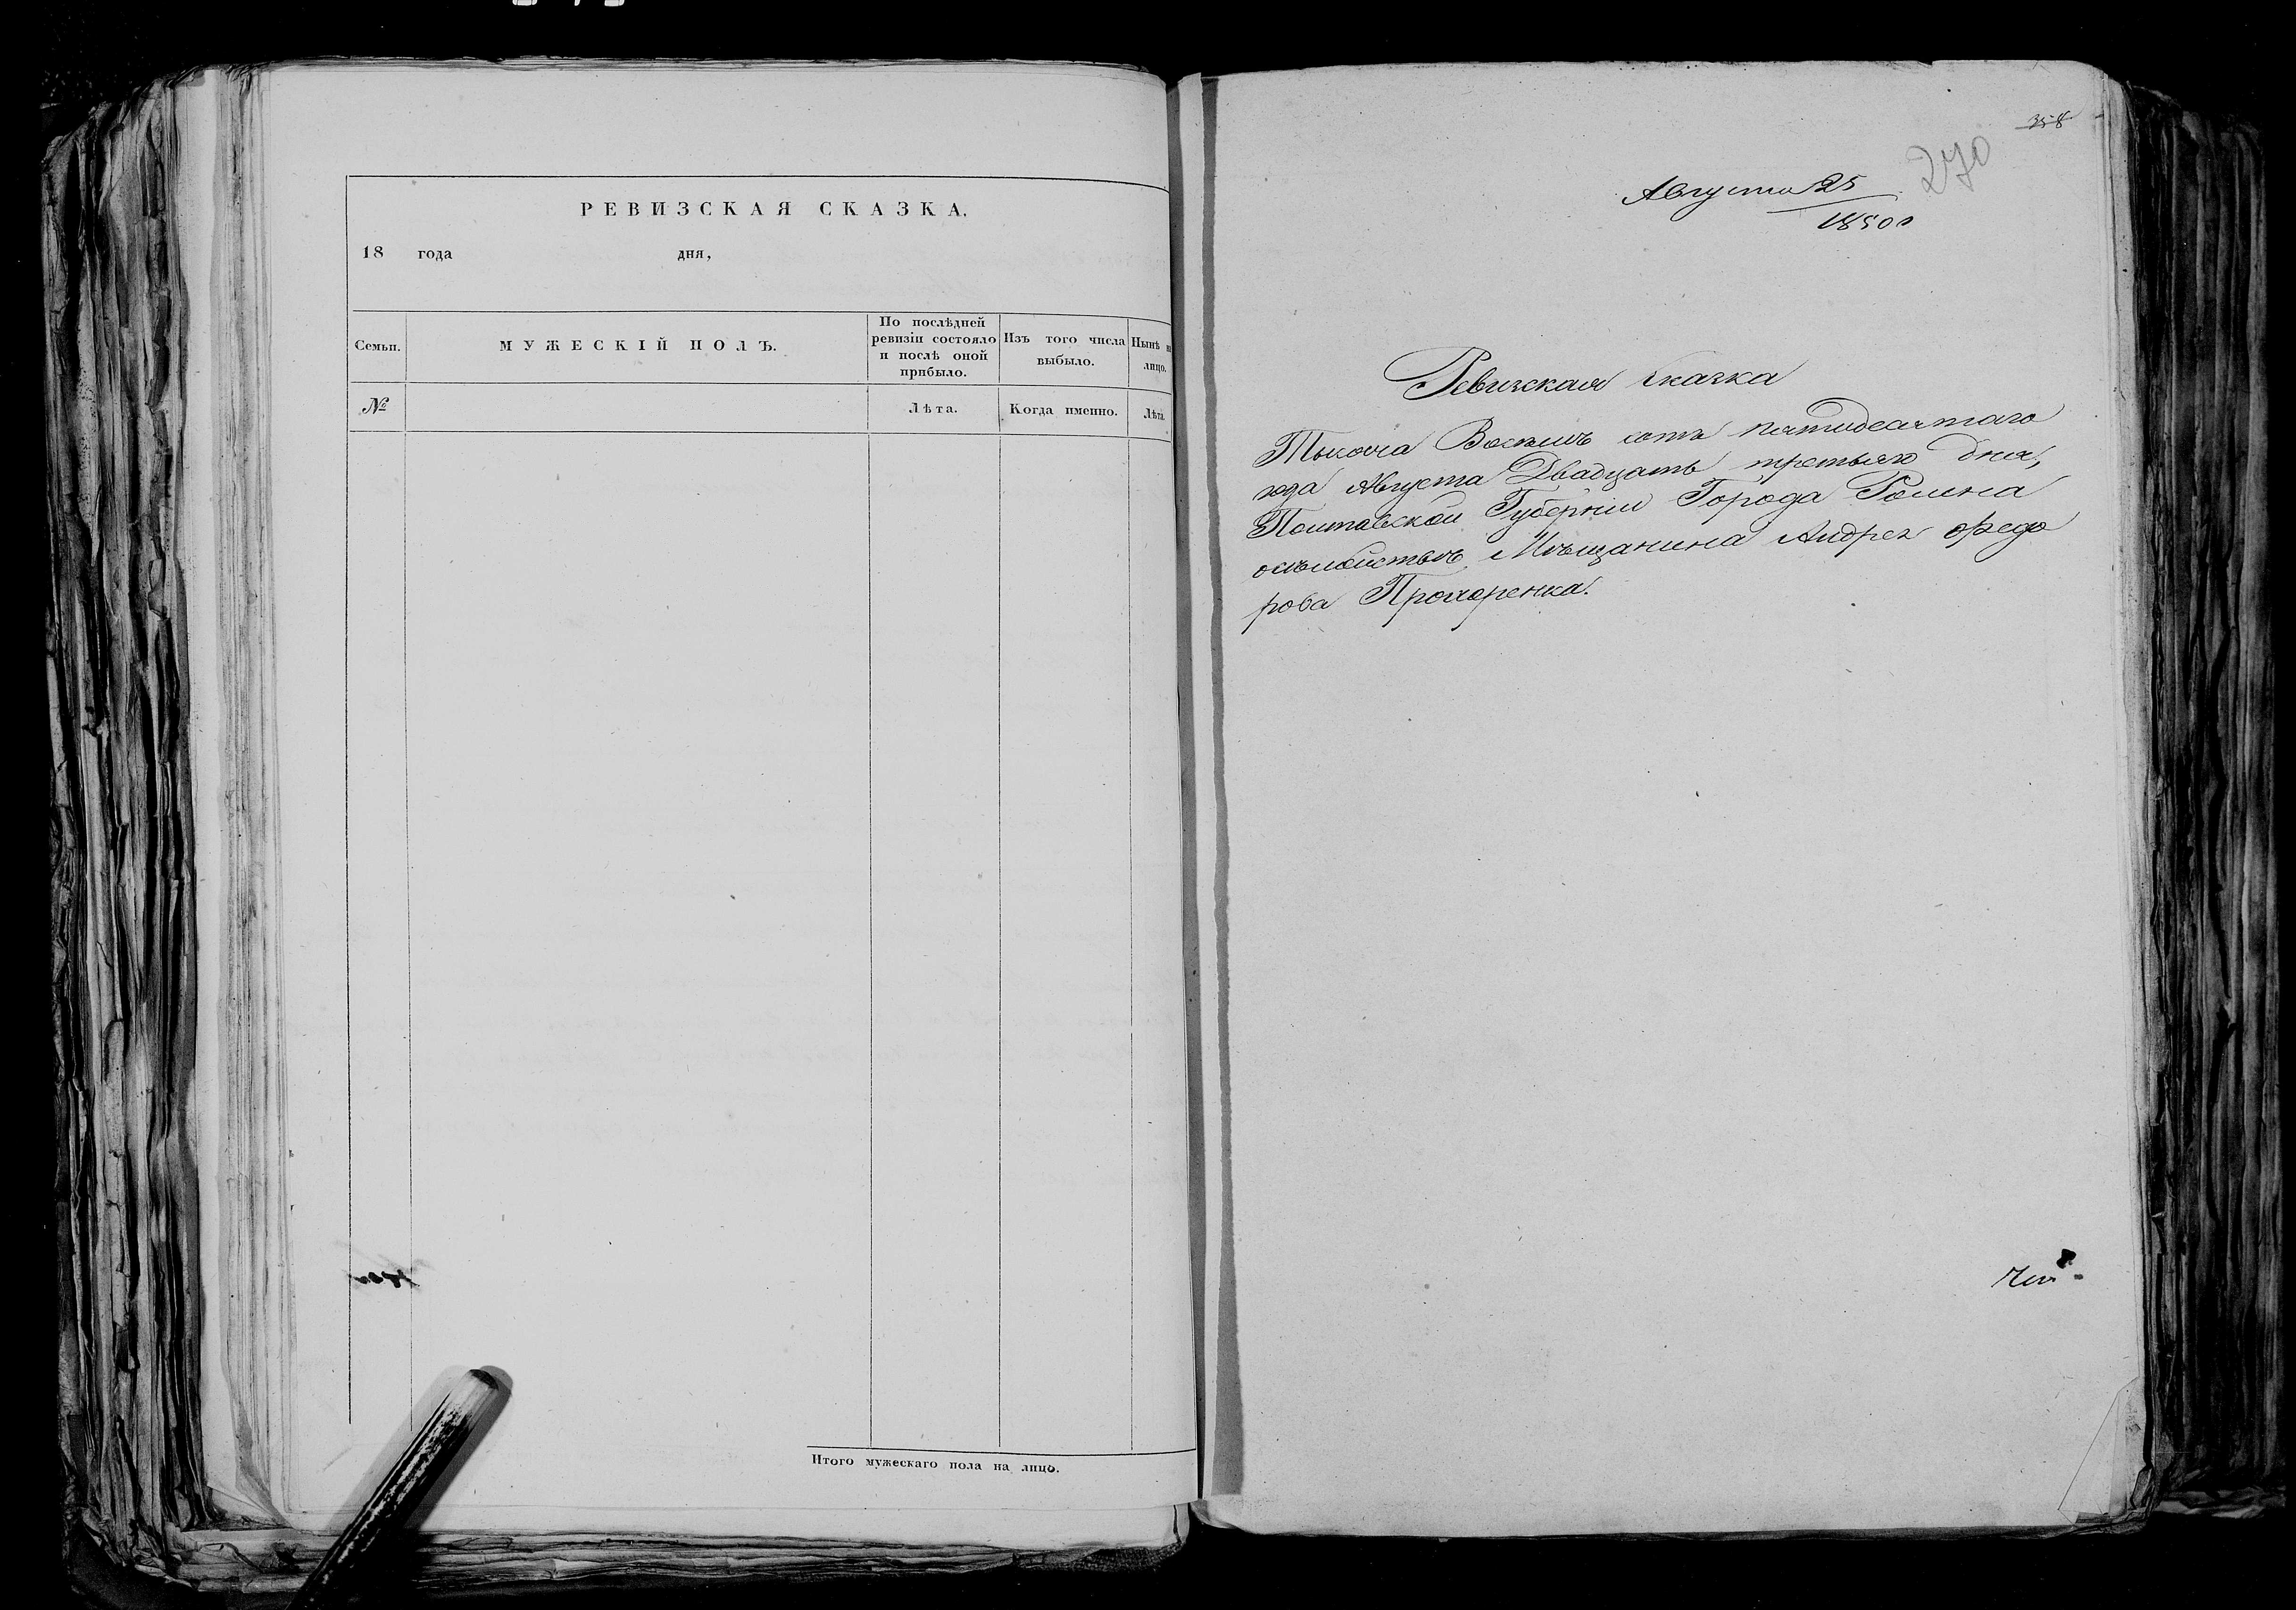 РЕВИЗСКАЯ СКАЗКА.
18 года дня,
Семьи.
МУЖЕСКІЙ ПОЛЪ.
По послѣдней
ревизіи состояло
и послѣ оной
прибыло.
Изъ того числа
выбыло.
Нынѣ на
лицо.
№
Лѣта.
Когда именно.
Лѣта.
Итого мужескаго пола на лицо.
358
270
Августа 25
1850
Ревизская сказка
Тысяча Восемь сотъ пятидесятаго
года Августа Двадцать третьяго дня,
Полтавской Губерніи Города Ромна
о семействѣ Мѣщанина Андрея Федо
рова Прохоренка.